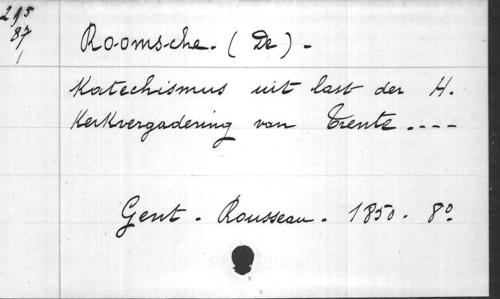 293
87
1
Roomsche. (De). -
Katechismus uit last der H.
Kerkvergadering van Trente ....
Gent. Rousseau. 1850. 8º